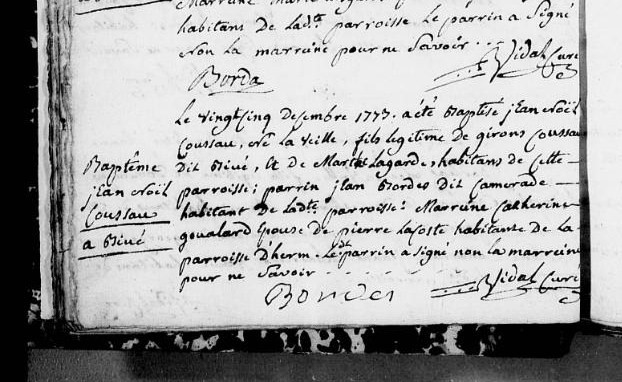 habitans de ladte parroisse le parrin a signé
non la marreine pour ne savoir ..
Vidal Curé
Borda
Le vingtcinq desembre 1773. a été Baptisé jean Noël
Coussau, né la veille, fils legitime de girons Coussau
dit Biué, Et de Marthe Lagarde, habitans de Cette
parroisse; parrin jean Bordes dit Camerade
habitant de ladte parroisse: Marrene Catherine
goualard Epouse de pierre Lacoste habitante de la
parroisse D'herm. Ledt parrin a signé non la marreine
pour ne Savoir
Vidal Curé
Bordes
Baptême
jean Noël
Coussau
a Biué